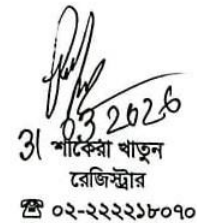 31 03 2026
শাকেরা খাতুন
রেজিস্ট্রার
☎ ০২-২২২২১৮০৭০